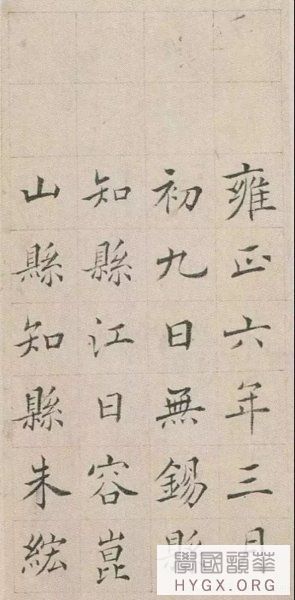 雍正六年三月
初九日無錫縣
知縣江日容崑
山縣知縣朱紘
學國韻華
HYGX.ORG